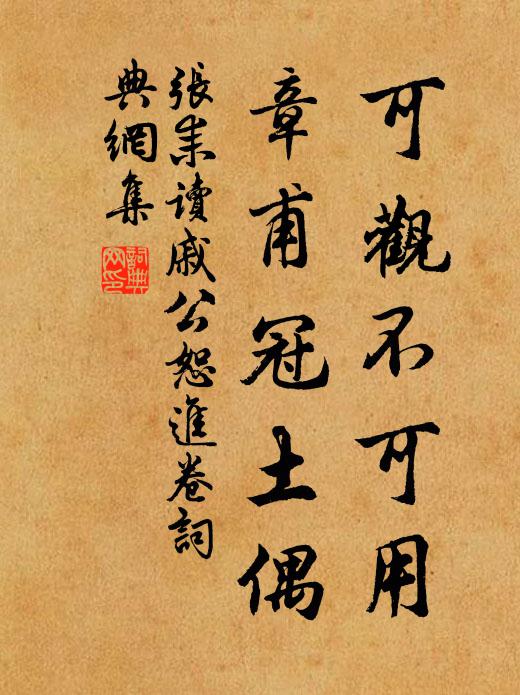 可觀不可用
章甫冠土偶
張耒讀戚公恕進卷詞
典網集
詞典
網印